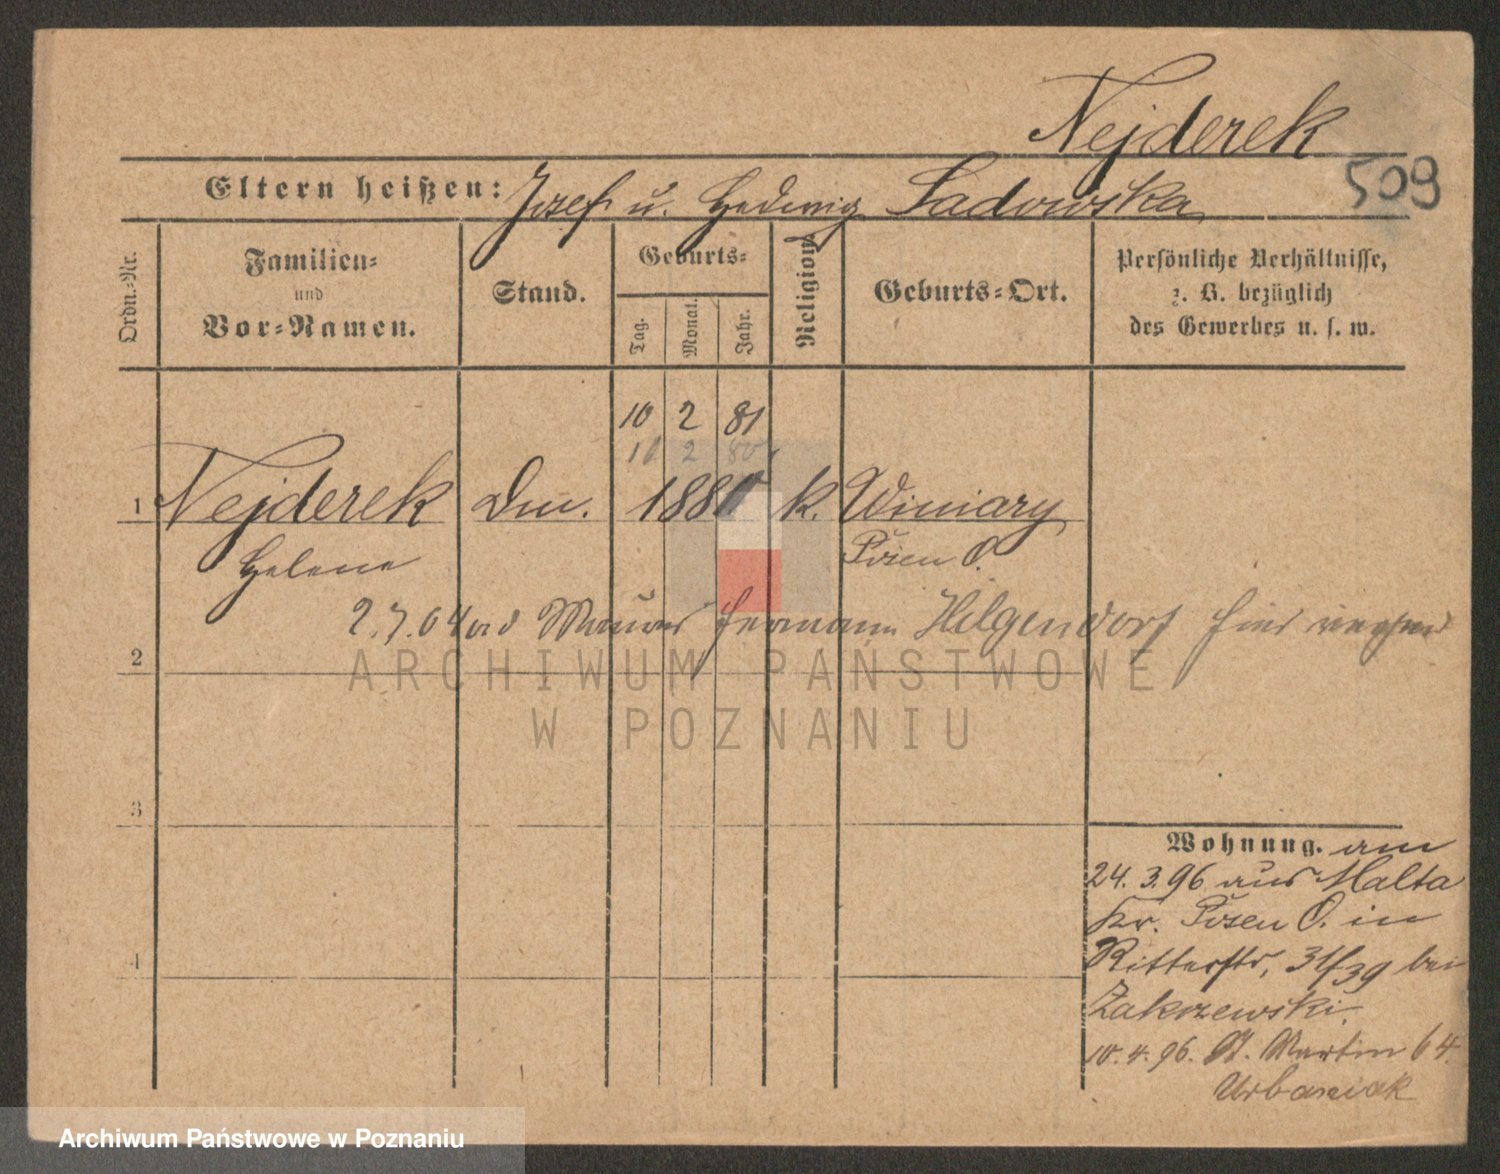 Nejderek
509
Eltern heißen: Josef u. Hedwig Sadowska
Ordn.-Nr.
Familien-
und
Vor-Namen.
Stand.
Geburts-
Tag.
Monat.
Jahr.
Religion.
Geburts-Ort.
Persönliche Verhältnisse,
z. B. bezüglich
des Gewerbes u. s. w.
10 2 81
10 2 80
1 Nejderek 1880 k. Winiary
Helene Posen O.
2.7.04 Hermann Hilgendorf hier
2
ARCHIWUM PAŃSTWOWE
W POZNANIU
3
4
Wohnung. am
24. 3. 96 aus Malta
Kr. Posen O. in
Ritterstr. 31/39 bei
Zakrzewski.
10. 4. 96. St. Martin 64.
Urbaniak
Archiwum Państwowe w Poznaniu